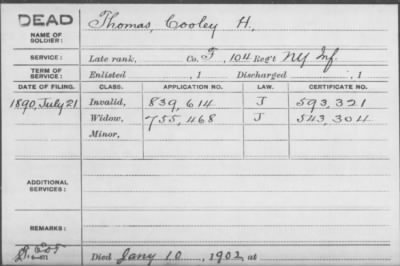 DEAD
NAME OF SOLDIER:
Thomas, Cooley H.
SERVICE:
Late rank, Co. F, 104 Reg't NY Inf.
TERM OF SERVICE:
Enlisted , 1 Discharged , 1
DATE OF FILING. CLASS. APPLICATION NO. LAW. CERTIFICATE NO.
1890, July 21 Invalid, 839,614 J 593,321
Widow, 755,468 J 543,304
Minor,
ADDITIONAL SERVICES:
REMARKS:
Died Jany 10, 1902, at